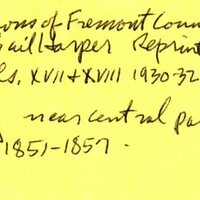 ons of Fremont Coun
ail Harper Reprin
ls. XVII & XVIII 1930-32
near central pa
1851-1857.